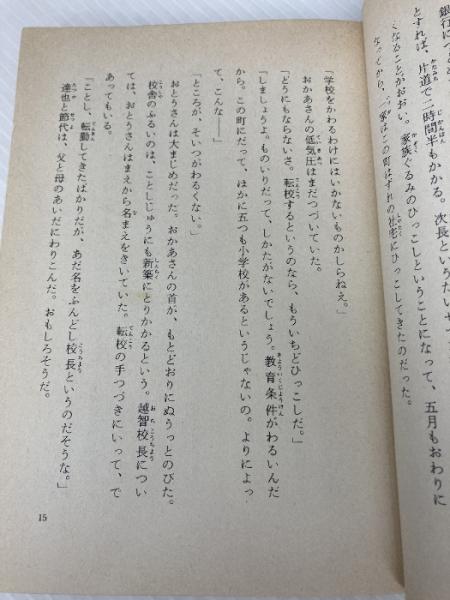 銀行につとめ
とすれば、片道で二時間半もかかる。次長というたいせ
くなることがおおい。家族ぐるみのひっこしということになって、五月もおわりに
なってから、一家はこの町はずれの社宅にひっこしてきたのだった。
「学校をかわるわけにはいかないものかしらねえ。」
おかあさんの低気圧はまだつづいていた。
「どうにもならないさ。転校するというのなら、もういちどひっこしだ。」
「しましょうよ。ものいりだって、しかたがないでしょう。教育条件がわるいんだ
から。この町にだって、ほかに五つも小学校があるというじゃないの。よりによっ
て、こんな――」
「ところが、そいつがわるくない。」
おとうさんは大まじめだった。おかあさんの首が、もとどおりにぬうっとのびた。
校舎のふるいのは、ことしじゅうにも新築にとりかかるという。越智校長につい
ては、おとうさんはまえから名まえをきいていた。転校の手つづきにいって、で
あってもいる。
「ことし、転勤してきたばかりだが、あだ名をふんどし校長というのだそうな。」
達也と節代は、父と母のあいだにわりこんだ。おもしろそうだ。
15